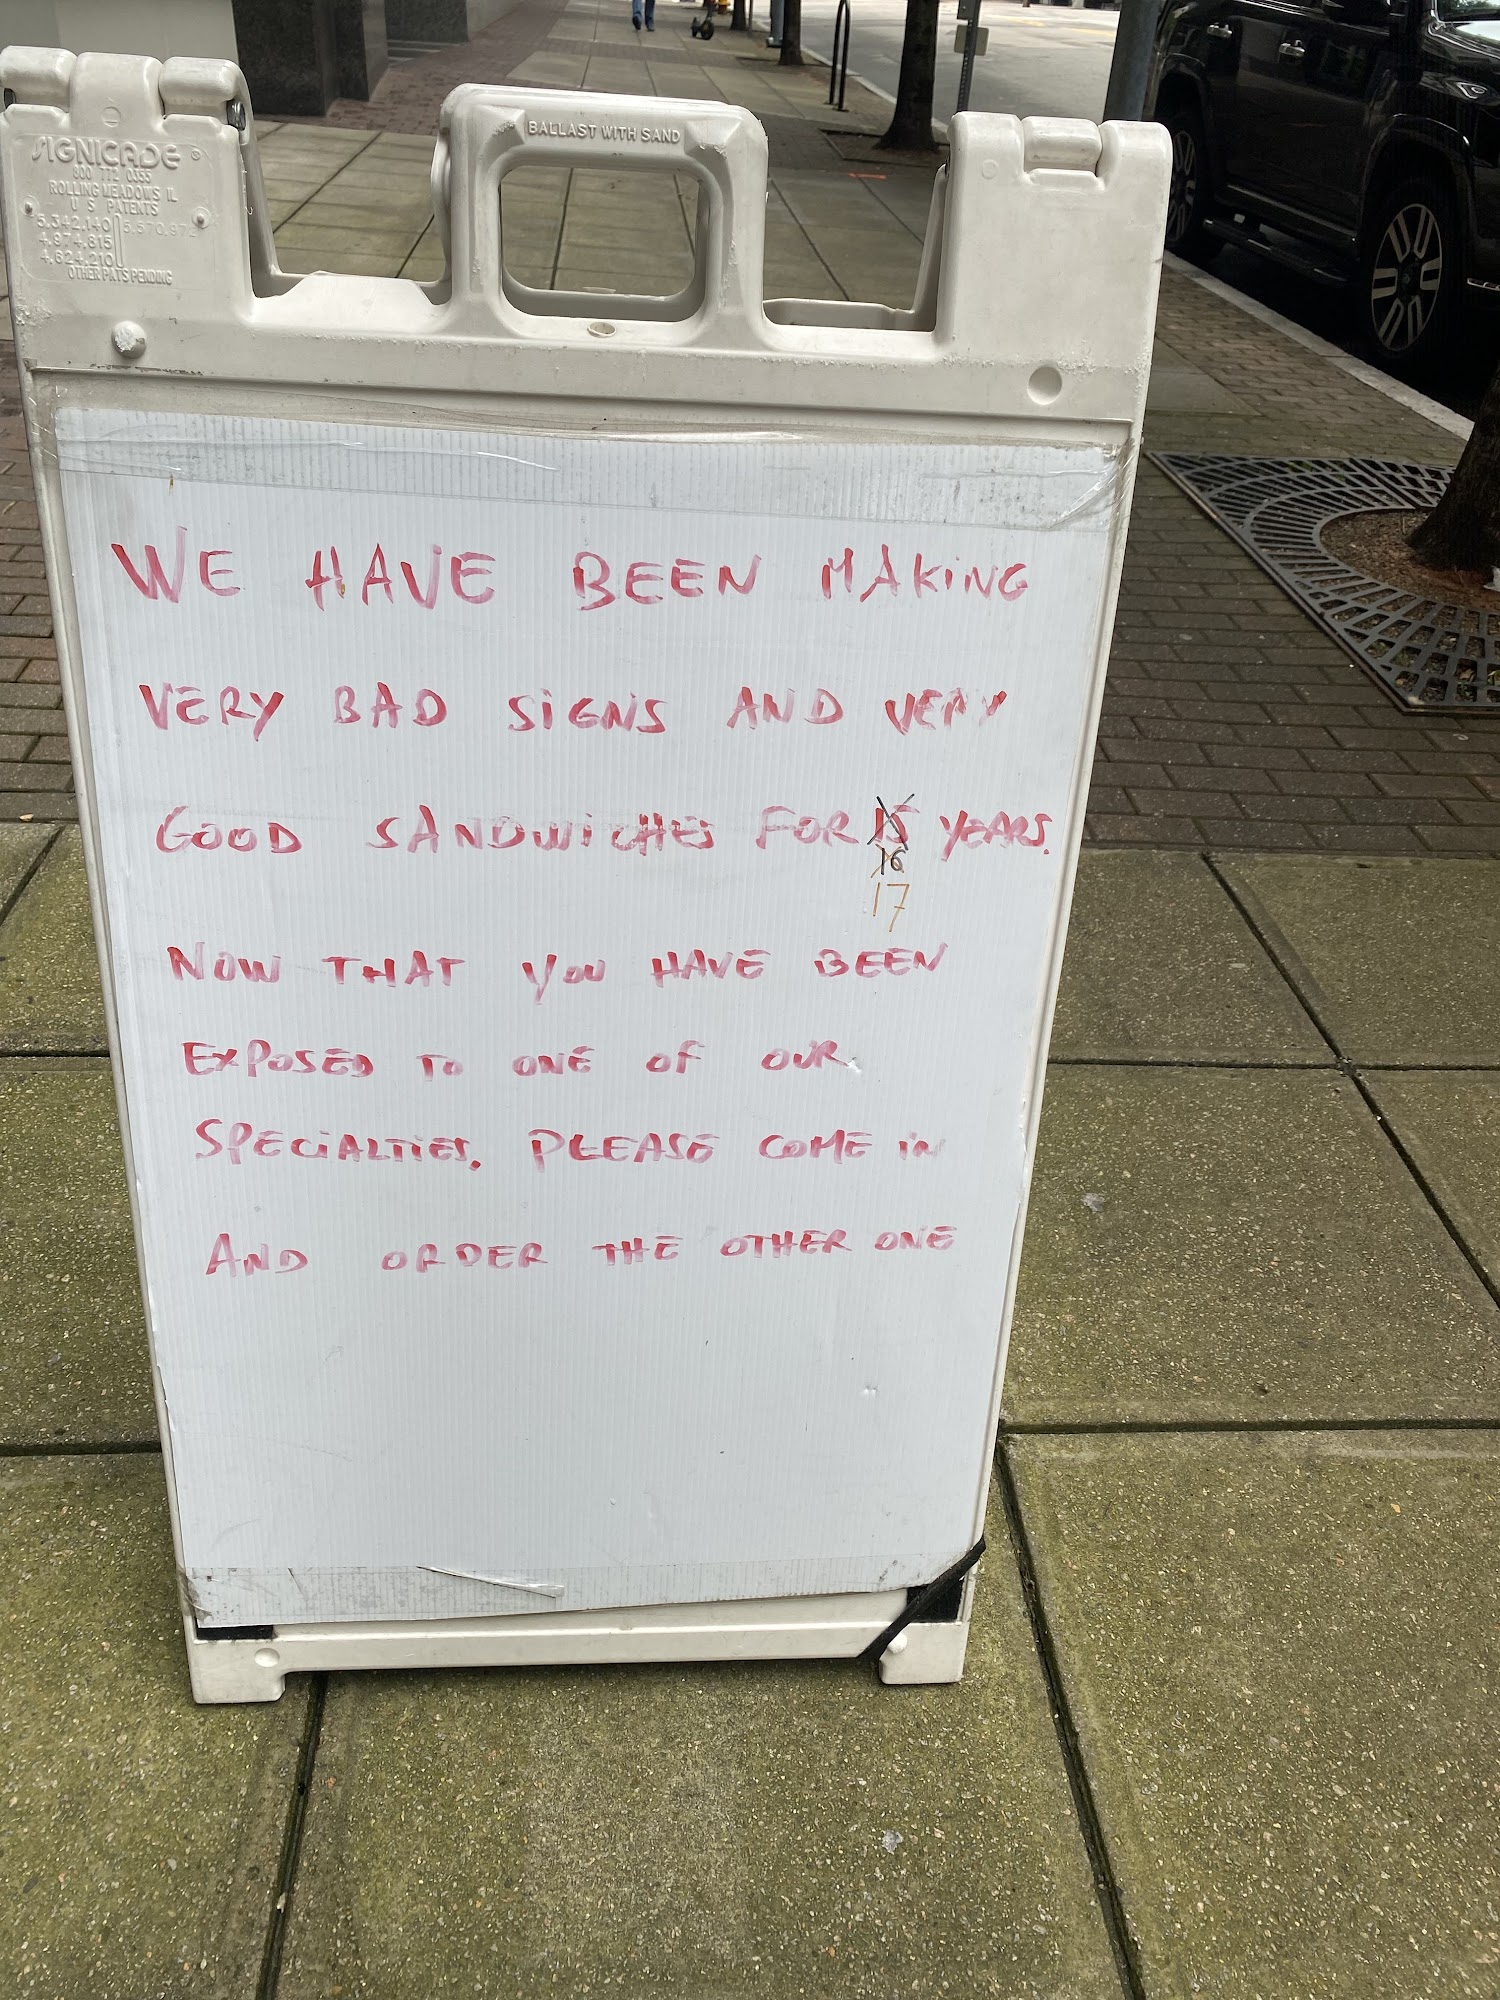 BALLAST WITH SAND
SIGNICADE ®
800 772 0355
ROLLING MEADOWS IL
U S PATENTS
5,342,140 5,570,972
4,974,815
4,624,210
OTHER PATS PENDING
WE HAVE BEEN MAKING
VERY BAD SIGNS AND VERY
GOOD SANDWICHES FOR 15 YEARS.
16
17
NOW THAT YOU HAVE BEEN
EXPOSED TO ONE OF OUR
SPECIALTIES, PLEASE COME IN
AND ORDER THE OTHER ONE